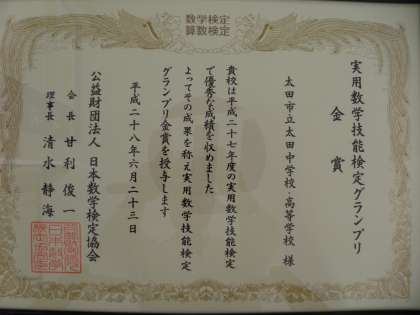 数学検定
算数検定
実用数学技能検定グランプリ
金賞
太田市立太田中学校・高等学校 様
貴校は平成二十七年度の実用数学技能検定
で優秀な成績を収めました
よってその成果を称え実用数学技能検定
グランプリ金賞を授与します
平成二十八年六月二十三日
公益財団法人 日本数学検定協会
会長 甘利俊一
理事長 清水静海